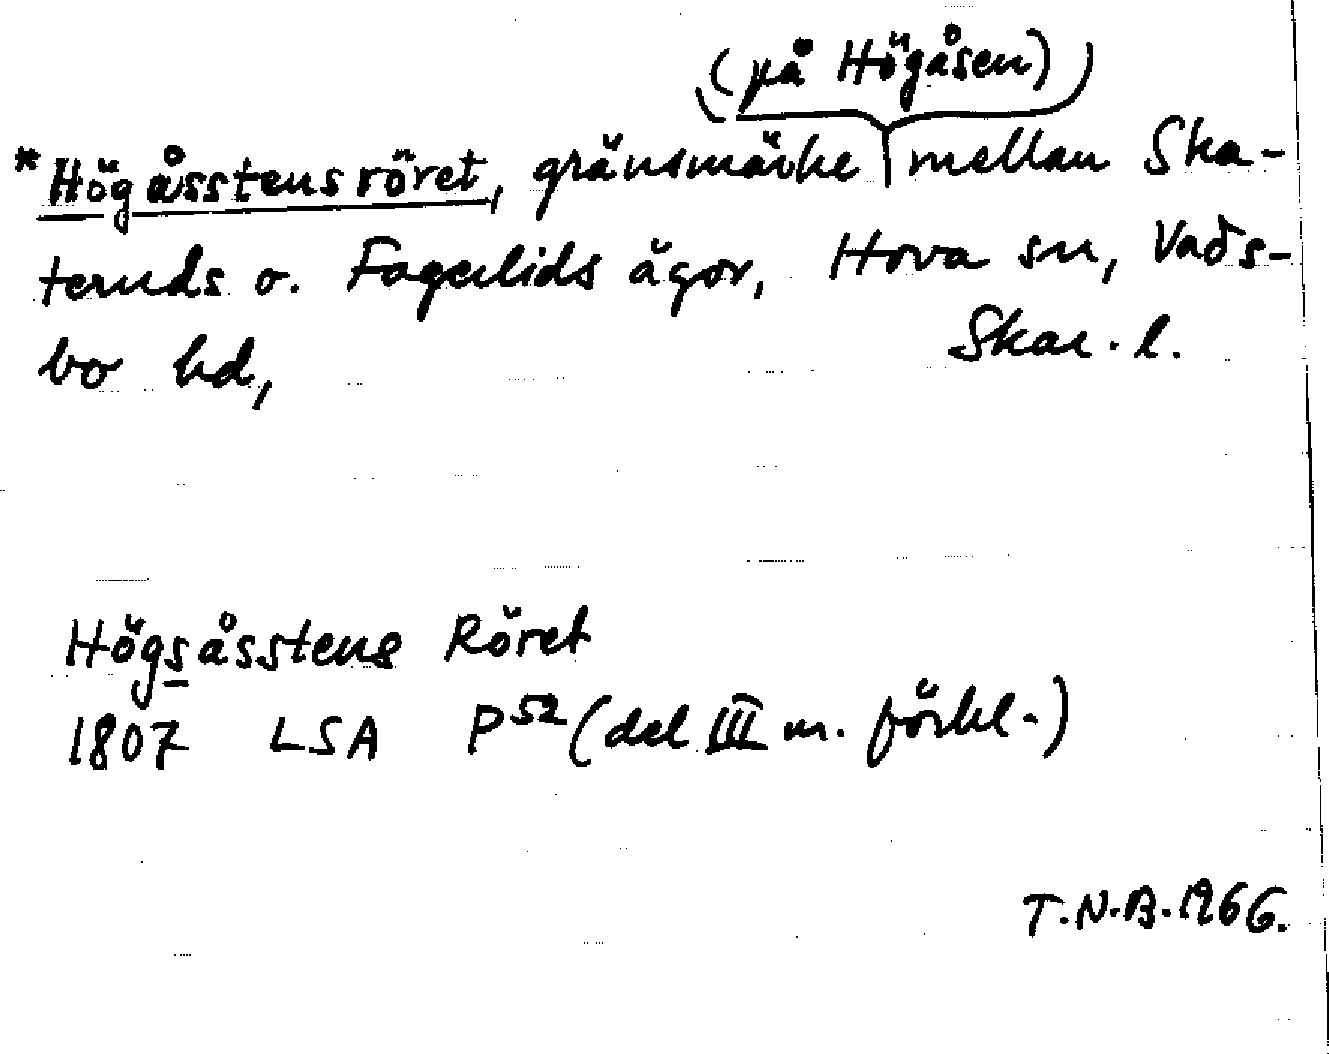 (på Högåsen)
*Högåsstensröret, gränsmärke mellan Ska-
teruds o. Fagerlids ägor, Hova sn, Vads-
bo hd, Skar. l.
Högsåsstens Röret
1807 LSA P52 (del III m. förkl.)
T.N.B. 1966.